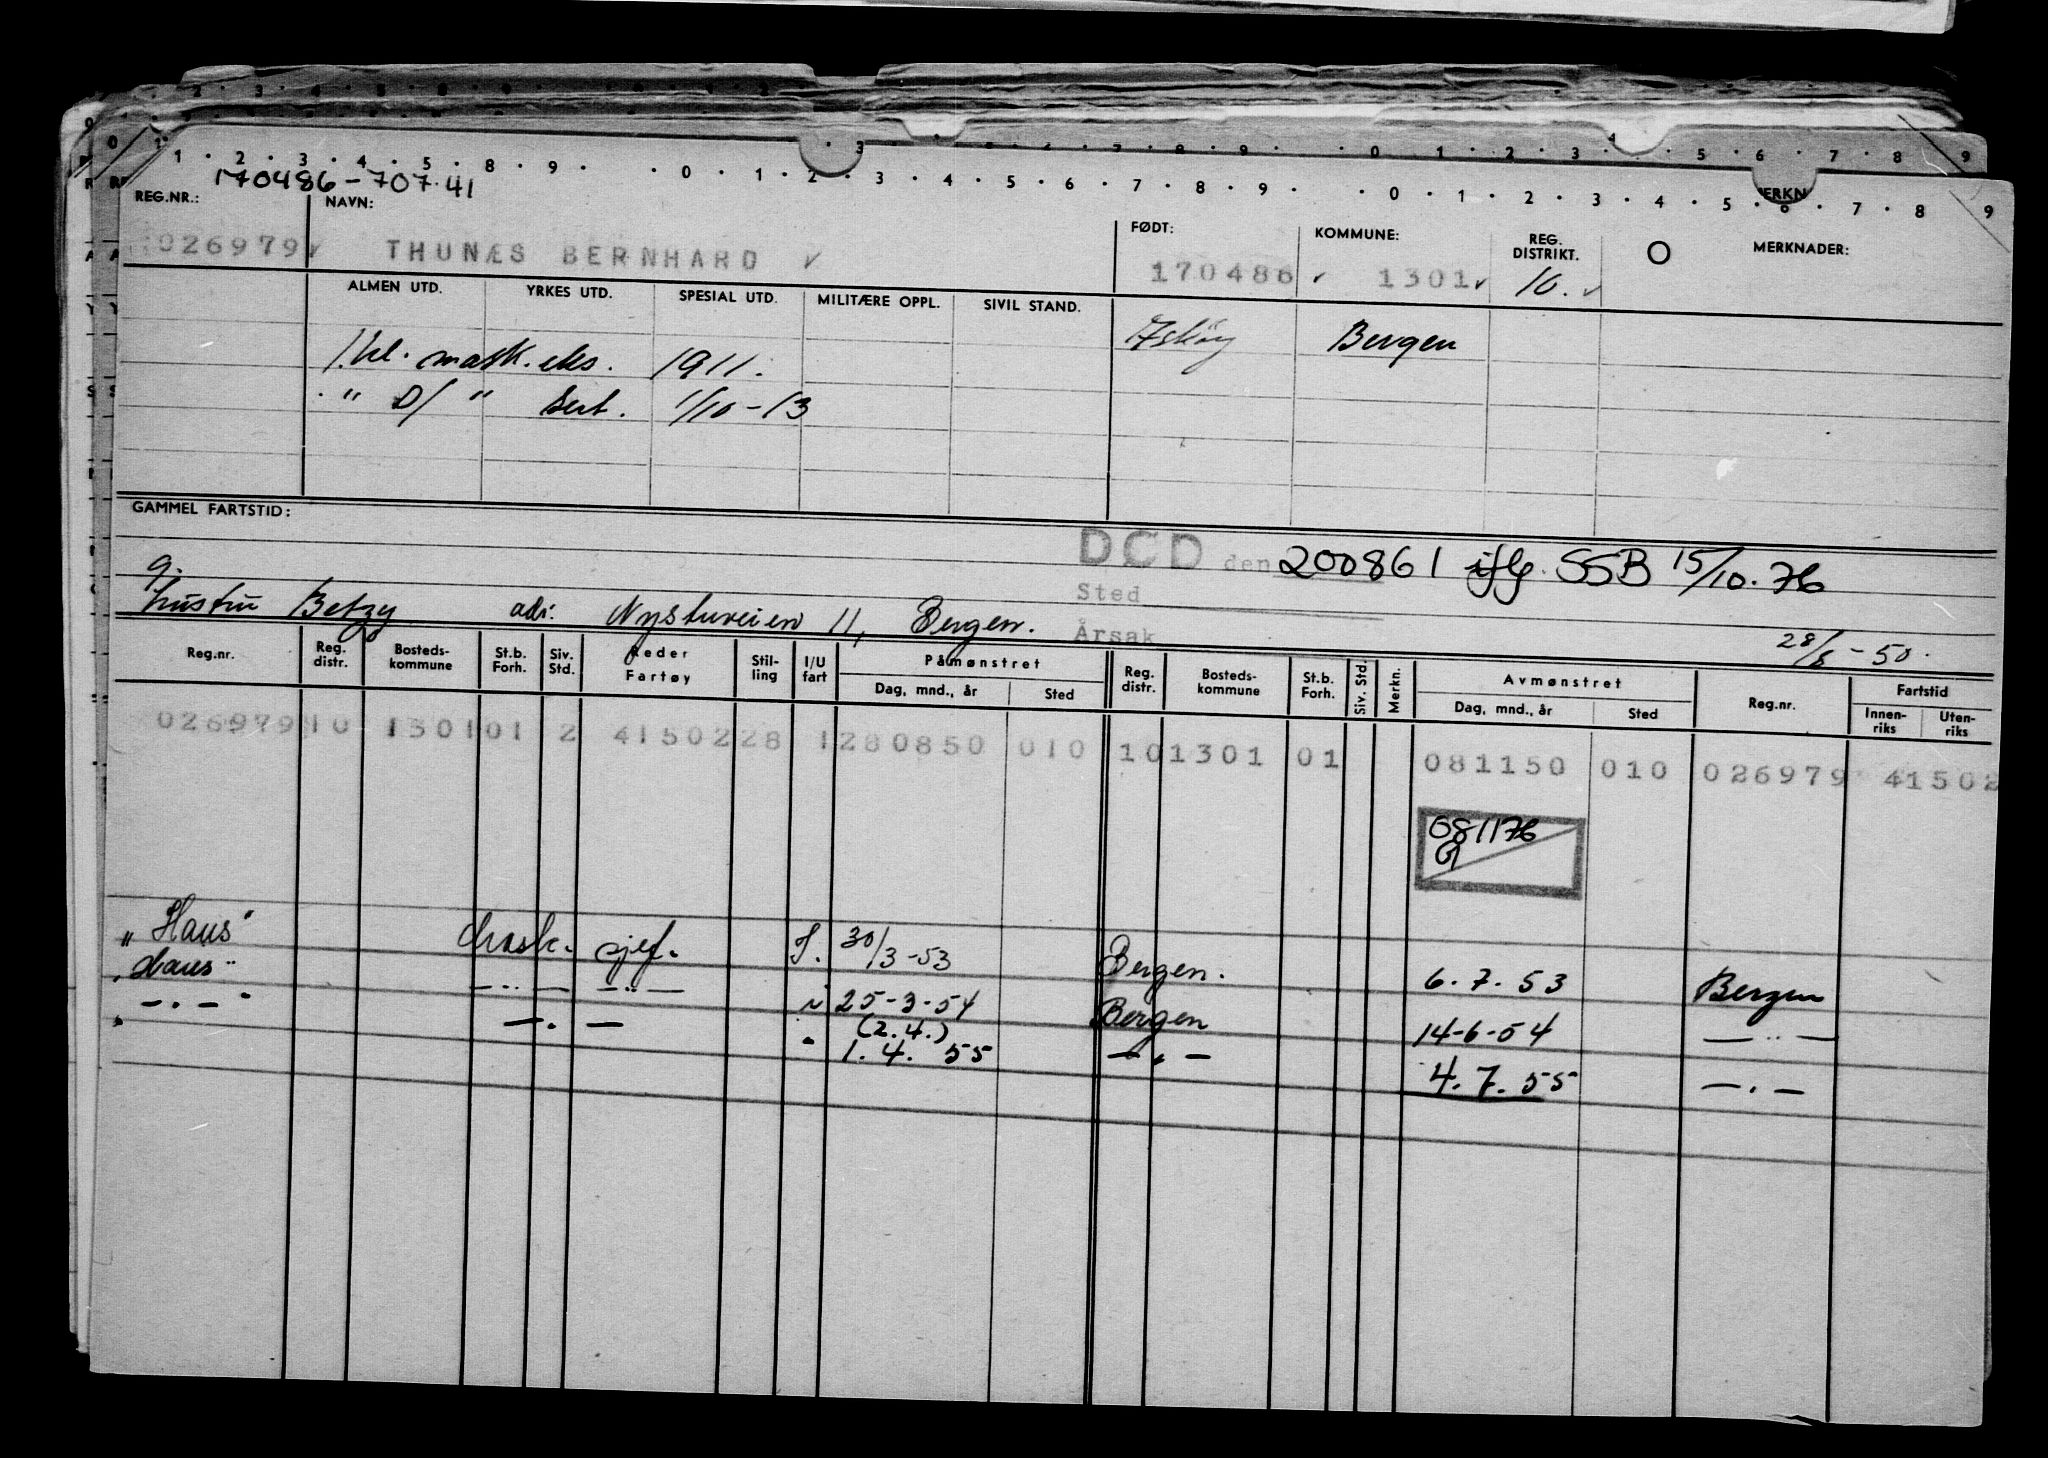 1 · 2 · 3 · 4 · 5 · 8 · 9 · · 0 · 1 · 2 · 3 · 4 · 5 · 6 · 7 · 8 · 9 · · 0 · 1 · 2 · 3 · 4 · 5 · 6 · 7 · 8 · 9
170486-707.41
REG.NR.: NAVN: FØDT: KOMMUNE: REG. DISTRIKT. O MERKNADER:
026979 THUNÆS BERNHARD 170486 1301 10.
ALMEN UTD. YRKES UTD. SPESIAL UTD. MILITÆRE OPPL. SIVIL STAND.
Askøy Bergen
1.kl. mask.eks. 1911.
" D/ " Sert. 1/10-13
GAMMEL FARTSTID:
DCD den 200861 iflg. SSB 15/10.76
g. Sted
hustru Betzy adr. Nystuveien 11, Bergen.
Årsak
28/8-50.
Reg.nr. Reg. distr. Bosteds-kommune St.b. Forh. Siv. Std. Reder Fartøy Stil-ling I/U fart Påmønstret Dag, mnd., år Sted Reg. distr. Bosteds-kommune St.b. Forh. Siv. Std. Merkn. Avmønstret Dag, mnd., år Sted Reg.nr. Fartstid Innen-riks Uten-riks
026979 10 1301 01 2 41502 28 1 280850 010 10 1301 01 081150 010 026979 41502
081176
"Haus" Mask. sjef. I. 30/3-53 Bergen. 6.7.53 Bergen
"Haus" — " — — " — " 25-3-54 Bergen 14-6-54 — " —
(2.4.)
" — " — " — " — " 1.4. 55 — " — 4.7.55 — " —